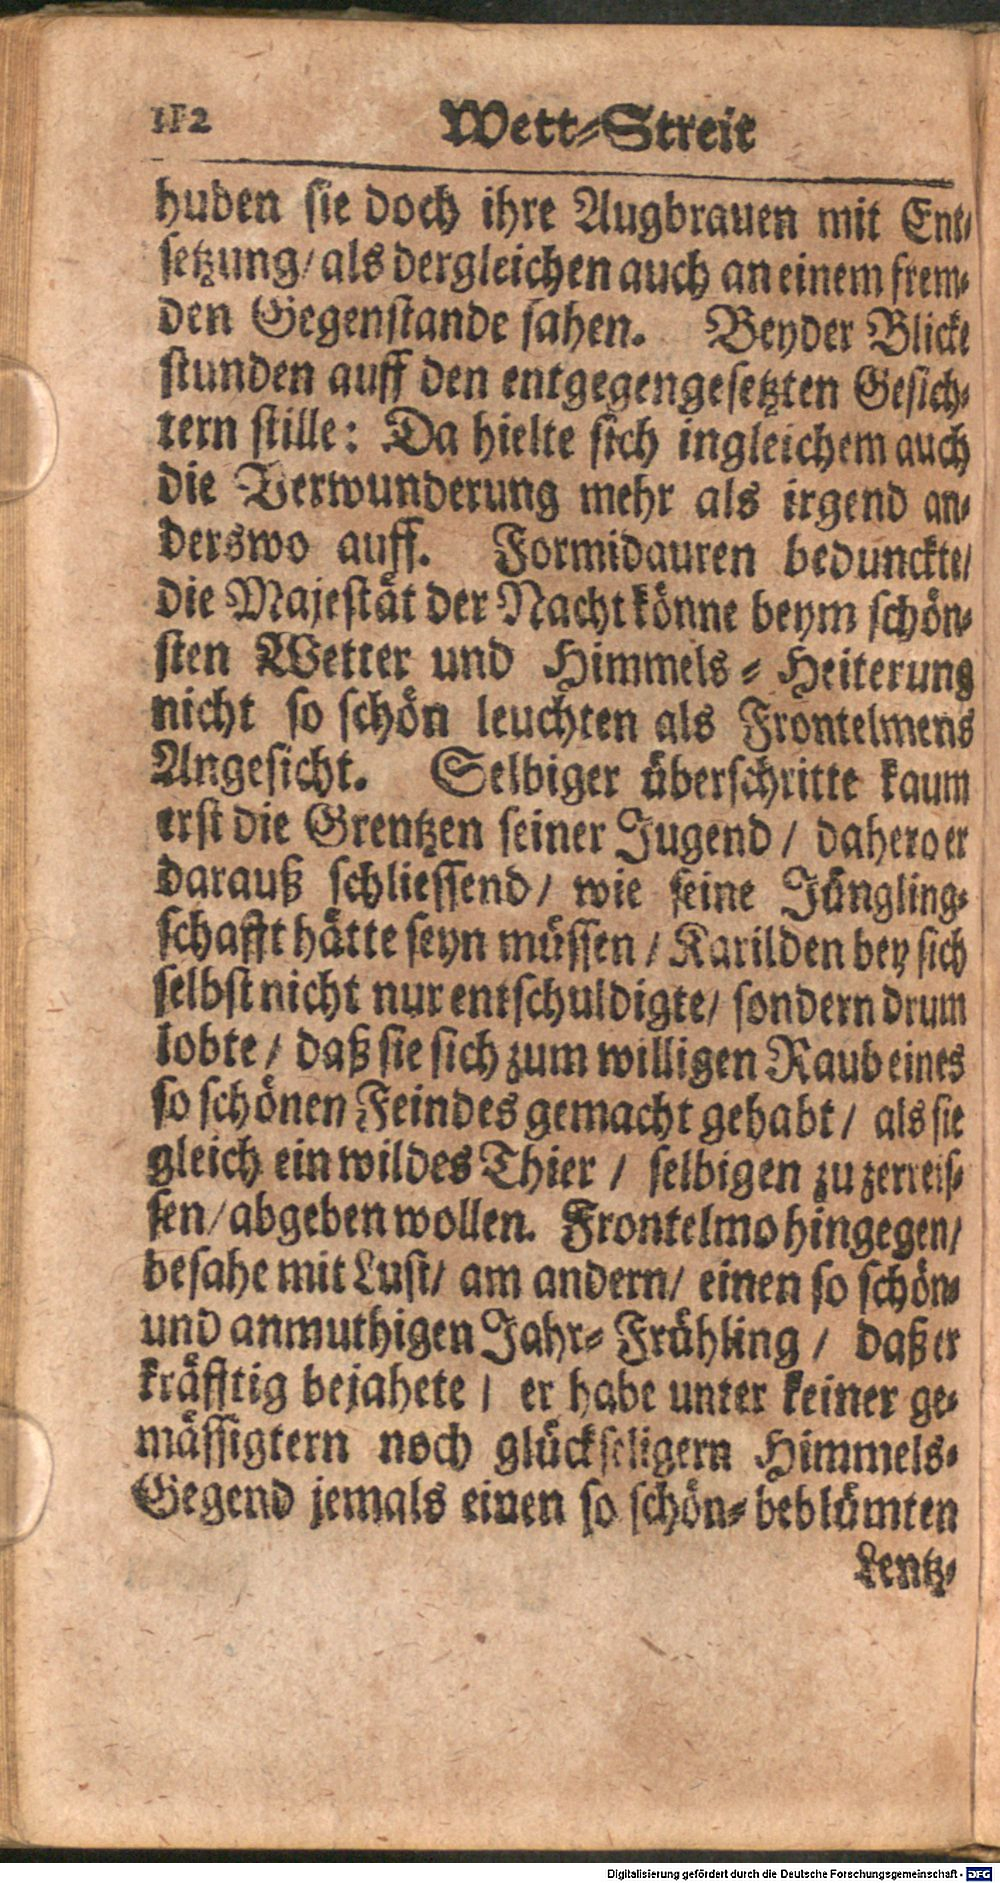 112 Wett-Streit
huden sie doch ihre Augbrauen mit Ent-
setzung/ als dergleichen auch an einem frem-
den Gegenstande sahen. Beyder Blicke
stunden auff den entgegengesetzten Gesich-
tern stille: Da hielte sich ingleichem auch
die Verwunderung mehr als irgend an-
derswo auff. Formidauren bedunckte/
die Majestät der Nacht könne beym schön-
sten Wetter und Himmels-Heiterung
nicht so schön leuchten als Frontelmens
Angesicht. Selbiger überschritte kaum
erst die Grentzen seiner Jugend / dahero er
darauß schliessend / wie seine Jüngling-
schafft hätte seyn müssen / Karilden bey sich
selbst nicht nur entschuldigte/ sondern drum
lobte / daß sie sich zum willigen Raub eines
so schönen Feindes gemacht gehabt / als sie
gleich ein wildes Thier / selbigen zu zerreis-
sen/ abgeben wollen. Frontelmo hingegen/
besahe mit Lust/ am andern/ einen so schön-
und anmuthigen Jahr-Frühling / daß er
kräfftig bejahete / er habe unter keiner ge-
mässigtern noch glückseligern Himmels-
Gegend jemals einen so schön-beblümten
Lentz-
Digitalisierung gefördert durch die Deutsche Forschungsgemeinschaft - DFG